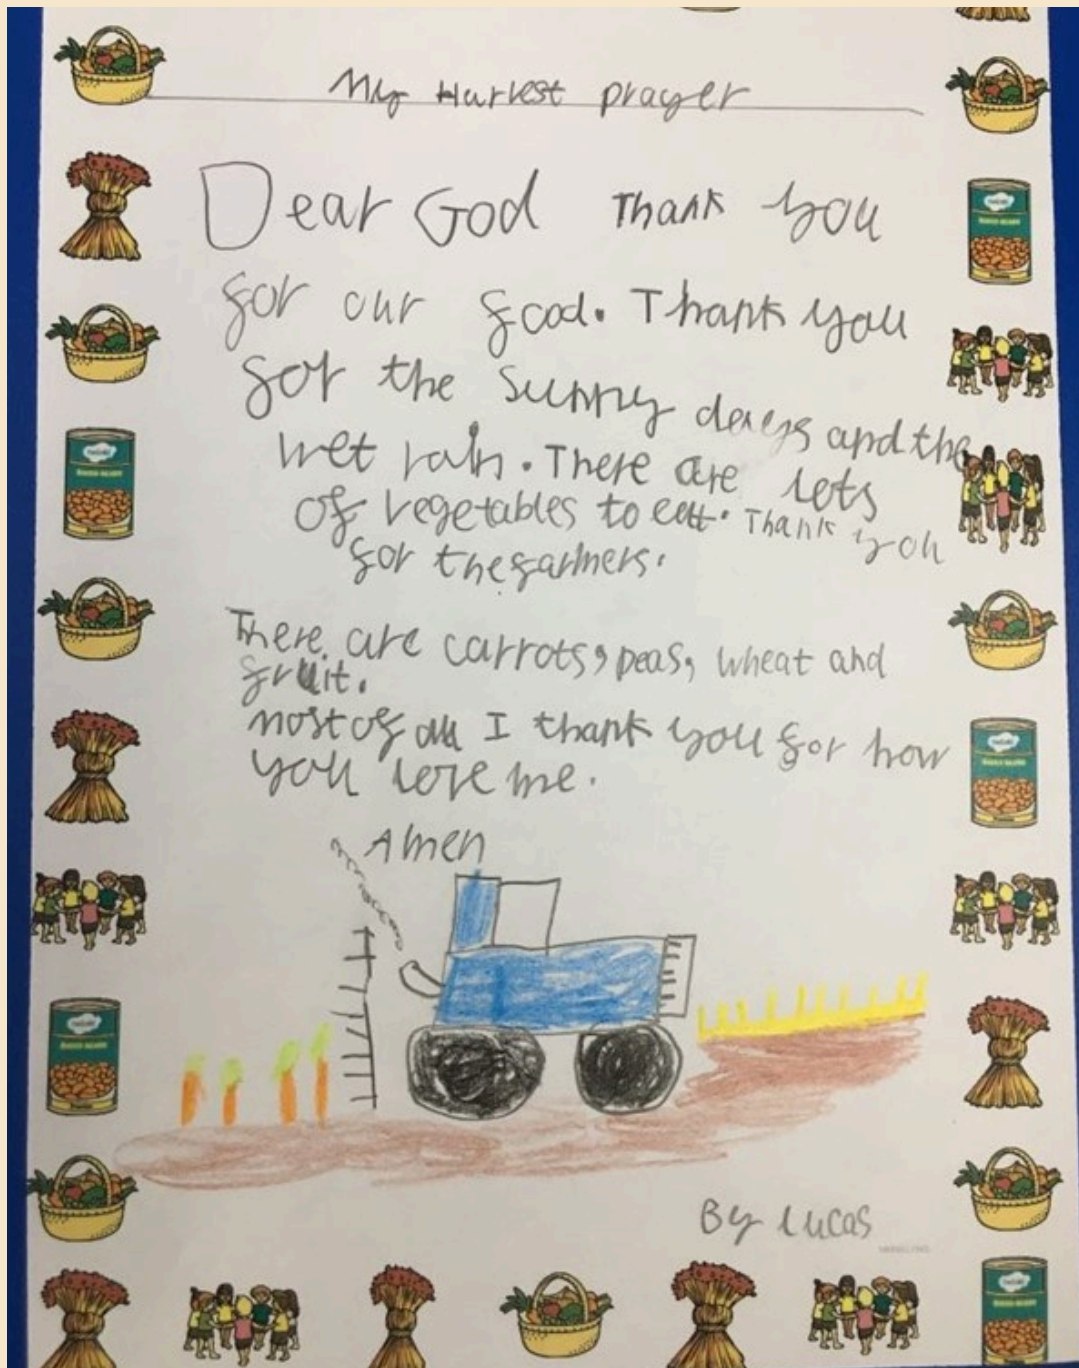 My Harvest prayer
Dear God Thank you
for our food. Thank you
for the sunny days and the
wet rain. There are lots
of vegetables to eat. Thank you
for the farmers.
There are carrots, peas, wheat and
fruit.
most of all I thank you for how
you love me.
Amen
By Lucas